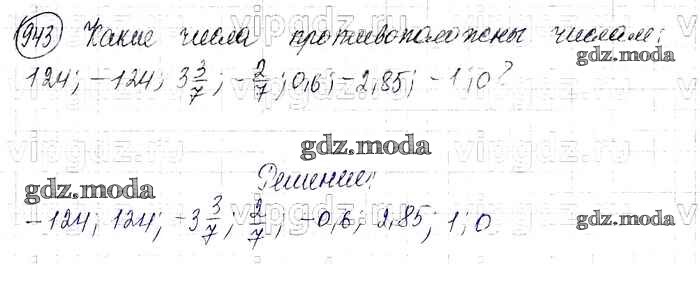 943 Какие числа противоположны числам:
124; -124; 3 3/7; -2/7; 0,6; -2,85; -1; 0?
Решение:
-124; 124; -3 3/7; 2/7; -0,6; 2,85; 1; 0
gdz.moda
gdz.moda
gdz.moda
gdz.moda
gdz.moda
vipgdz.ru
vipgdz.ru
vipgdz.ru